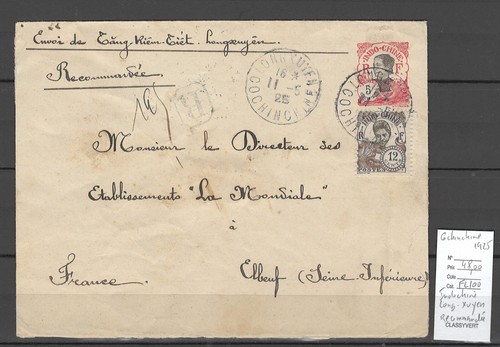 Envoi de Tăng-Kiên-Tiêt. Longxuyên
Recommandée
INDO-CHINE
5
LONGXUYEN
16
11-5
25
COCHINCHINE
COCHINCHINE
R
INDO-CHINE
POSTES
12
Monsieur le Directeur des
Etablissements "La Mondiale"
à
Elbeuf (Seine-Inférieure)
France.
Cochinchine
1925
N°
Prix 48,00
Cote
Cat. FL100
Indochine
Long-Xuyen
Recommandée
CLASSYVERT